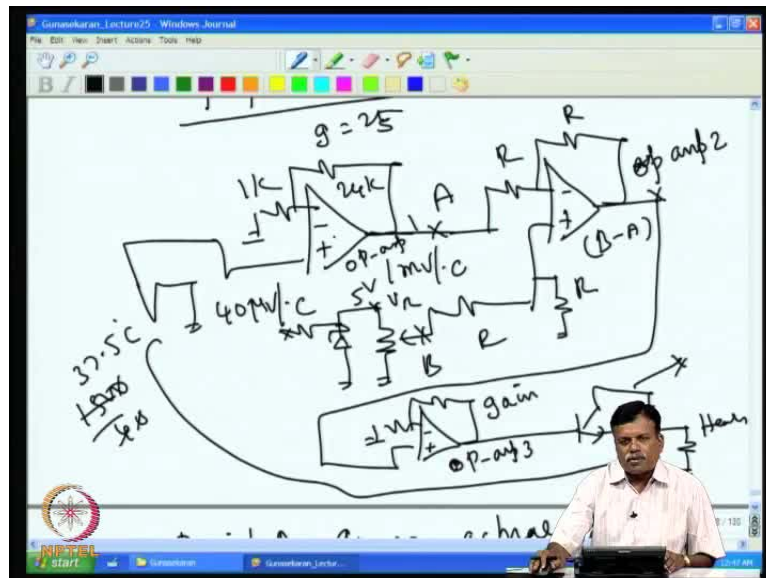 Gunasekaran_Lecture25 - Windows Journal
File Edit View Insert Actions Tools Help
B I
g = 25
R
1K
24K
A
R
op amp 2
-
+
op-amp 1
1mV/°C
-
+
(B-A)
40µV/°C
5V
VR
R
B
R
37.5°C
gain
-
+
op-amp 3
NPTEL
start
Gunasekaran
Gunasekaran_Lectur...
12:47 AM